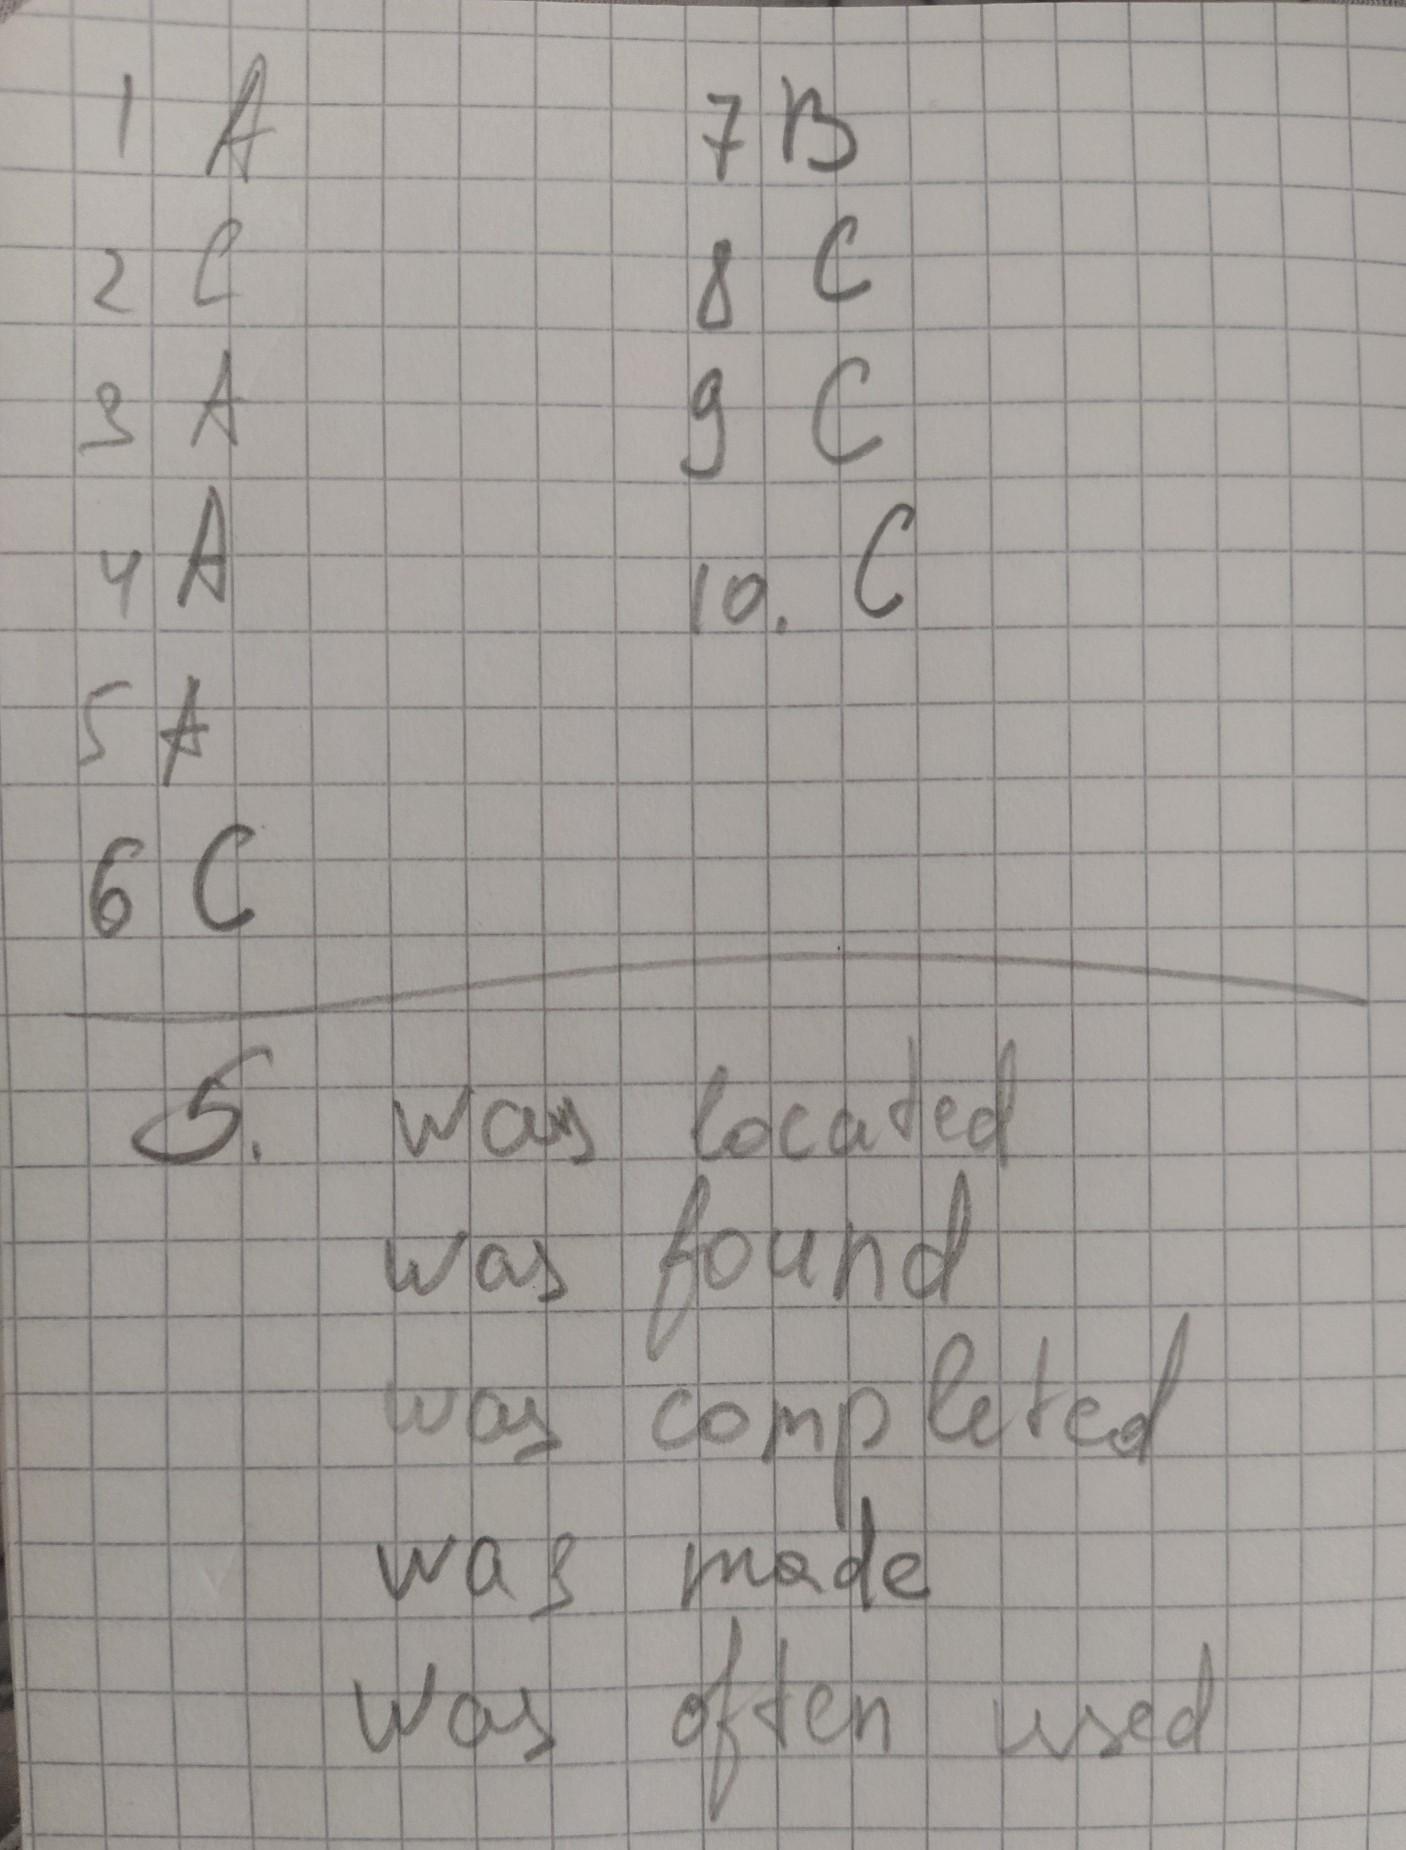 1 A
2 C
3 A
4 A
5 A
6 C
7 B
8 C
9 C
10. C
5. was located
was found
was completed
was made
was often used